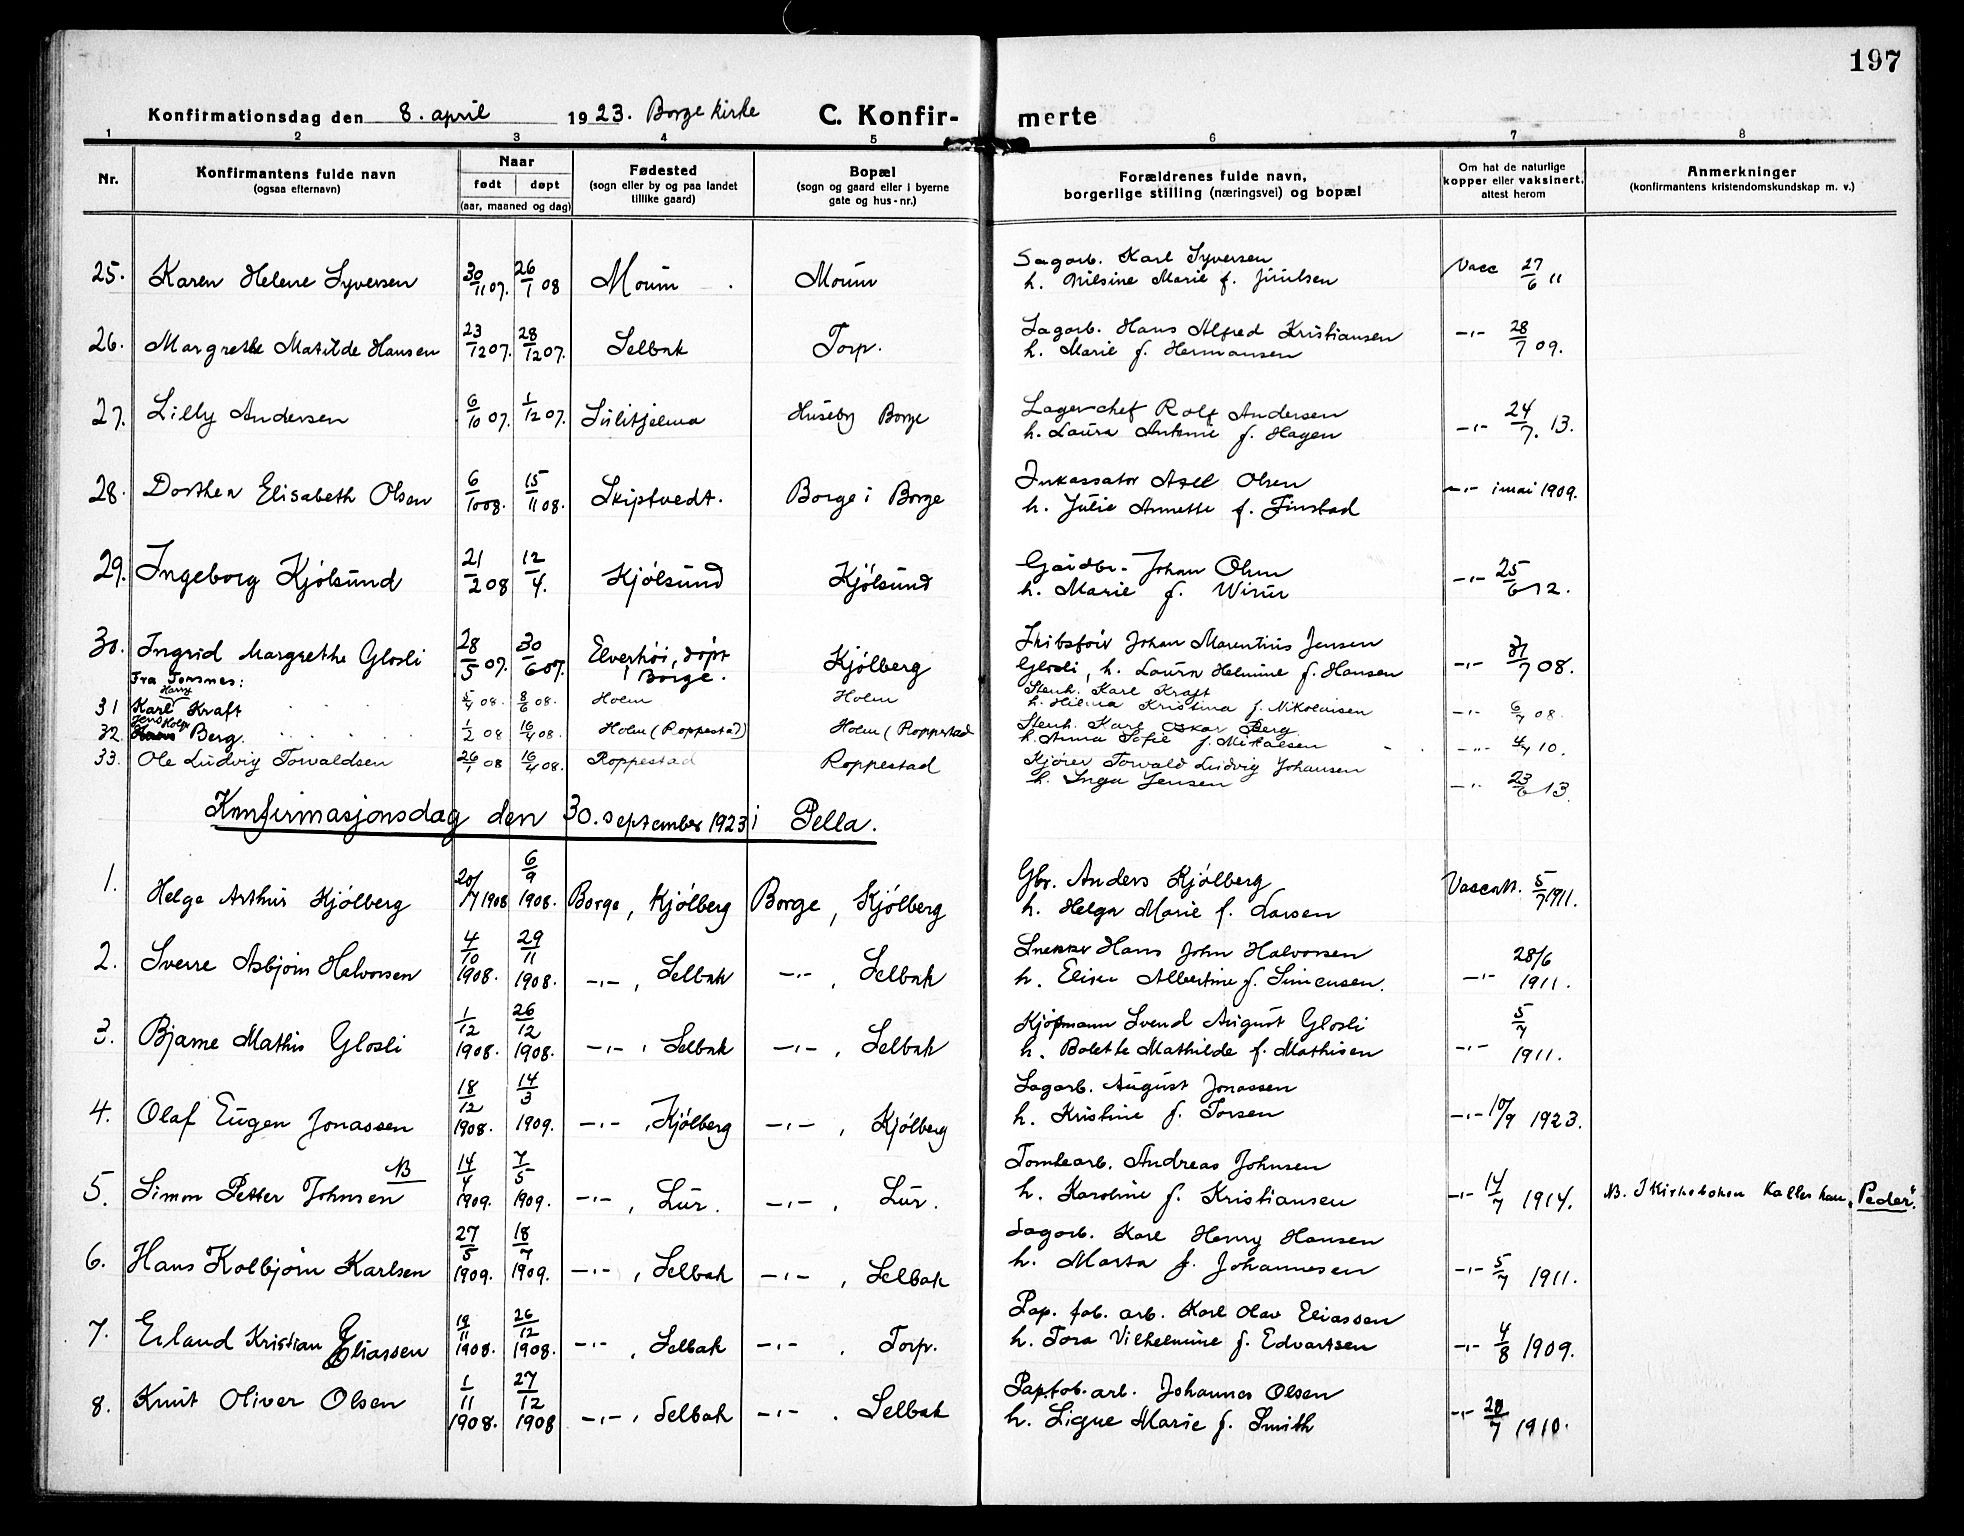 197
Konfirmationsdag den 8. april 1923. Borge kirke C. Konfirmerte
1 2 3 4 5 6 7 8
Nr. Konfirmantens fulde navn (ogsaa efternavn) Naar født døpt (aar, maaned og dag) Fødested (sogn eller by og paa landet tillike gaard) Bopæl (sogn og gaard eller i byerne gate og hus-nr.) Forældrenes fulde navn, borgerlige stilling (næringsvei) og bopæl Om hat de naturlige kopper eller vaksinert, attest herom Anmerkninger (konfirmantens kristendomskundskap m. v.)
25. Karen Helene Syversen 30/11 07. 26/1 08 Moum Moum Sagarb. Karl Syversen Vacc 27/6 11
h. Nilsine Marie f. Juulsen
26. Margrethe Matilde Hansen 23/12 07. 28/12 07. Selbak Torp. Sagarb. Hans Alfred Kristiansen -"- 28/7 09.
h. Marie f. Hermansen
27. Lilly Andersen 6/10 07. 1/12 07. Sulitjelma Huseby Borge Lagerchef Rolf Andersen -"- 24/7. 13.
h. Laura Antonie f. Hagen
28. Dorthea Elisabeth Olsen 6/10 08. 15/11 08. Skiptvedt. Borge i Borge Inkassator Axel Olsen -"- i mai 1909.
h. Julie Annette f. Finstad
29. Ingeborg Kjølsund 21/2 08 12/4. Kjølsund Kjølsund Gaardbr. Johan Olsen -"- 25/6 12.
h. Marie f.
30. Ingrid Margrethe Glosli 28/5 07. 30/6 07. Elverhøi, døpt i Borge. Kjølberg Skibsfør Johan Marentius Jensen -"- 31/7 08.
Glosli, h. Laura Helmine f. Hansen
Fra Torsnes:
31 Karl Harry Kraft 5/4 08. 8/6 08. Holm Holm Stenh. Karl Kraft -"- 6/7 08.
h. Hilma Kristina f. Nikolaisen
32. Jens Holger Berg. 1/2 08 16/4 08. Holm (Roppestad) Holm (Roppestad Stenh. Karl Oskar Berg. -"- 4/7 10.
h. Anna Sofie f. Mikaelsen
33. Ole Ludvig Torvaldsen 26/1 08 16/4 08. Roppestad Roppestad Kjører Torvald Ludvig Johansen -"- 23/6 13.
h. Inga Jensen
Konfirmasjonsdag den 30. september 1923 i Pella.
1. Helge Arthur Kjølberg 20/7 1908 6/9 1908. Borge, Kjølberg Borge, Kjølberg Gbr. Anders Kjølberg Vaccatt. 5/7 1911.
h. Helga Marie f. Larsen
2. Sverre Asbjørn Halvorsen 4/10 1908. 29/11 1908. -"-, Selbak -"-, Selbak Snekker Hans John Halvorsen -"- 28/6 1911.
h. Elise Albertine f. Simensen.
3. Bjarne Mathis Glosli 1/12 1908. 26/12 1908. -"-, Selbak -"-, Selbak Kjøpmann Svend August Glosli -"- 5/7 1911.
h. Bolette Mathilde f. Mathisen
4. Olaf Eugen Jonassen 18/12 1908. 14/3 1909. -"-, Kjølberg -"-, Kjølberg Sagarb. August Jonassen -"- 10/9 1923.
h. Kristine f. Torsen
5. Simon Petter Johnsen NB 14/4 1909. 7/5 1909. -"-, Lur. -"-, Lur. Tomtearb. Andreas Johnsen -"- 14/7 1914. NB. I Kirkeboken kalles han "Peder".
h. Karoline f. Kristiansen
6. Hans Kolbjørn Karlsen 27/5 1909. 18/7 1909. -"-, Selbak -"-, Selbak Sagarb. Karl Henry Hansen -"- 5/7 1911.
h. Marta f. Johannesen
7. Erland Kristian Eliassen 19/11 1908. 26/12 1908. -"-, Selbak -"-, Torp. Pap. fab. arb. Karl Olav Eliassen -"- 4/8 1909.
h. Tora Vilhelmine f. Edvartsen
8. Knut Oliver Olsen 1/11 1908. 27/12 1908 -"-, Selbak -"-, Selbak Pap.fab. arb. Johannes Olsen -"- 20/7 1910.
h. Signe Marie f. Smith